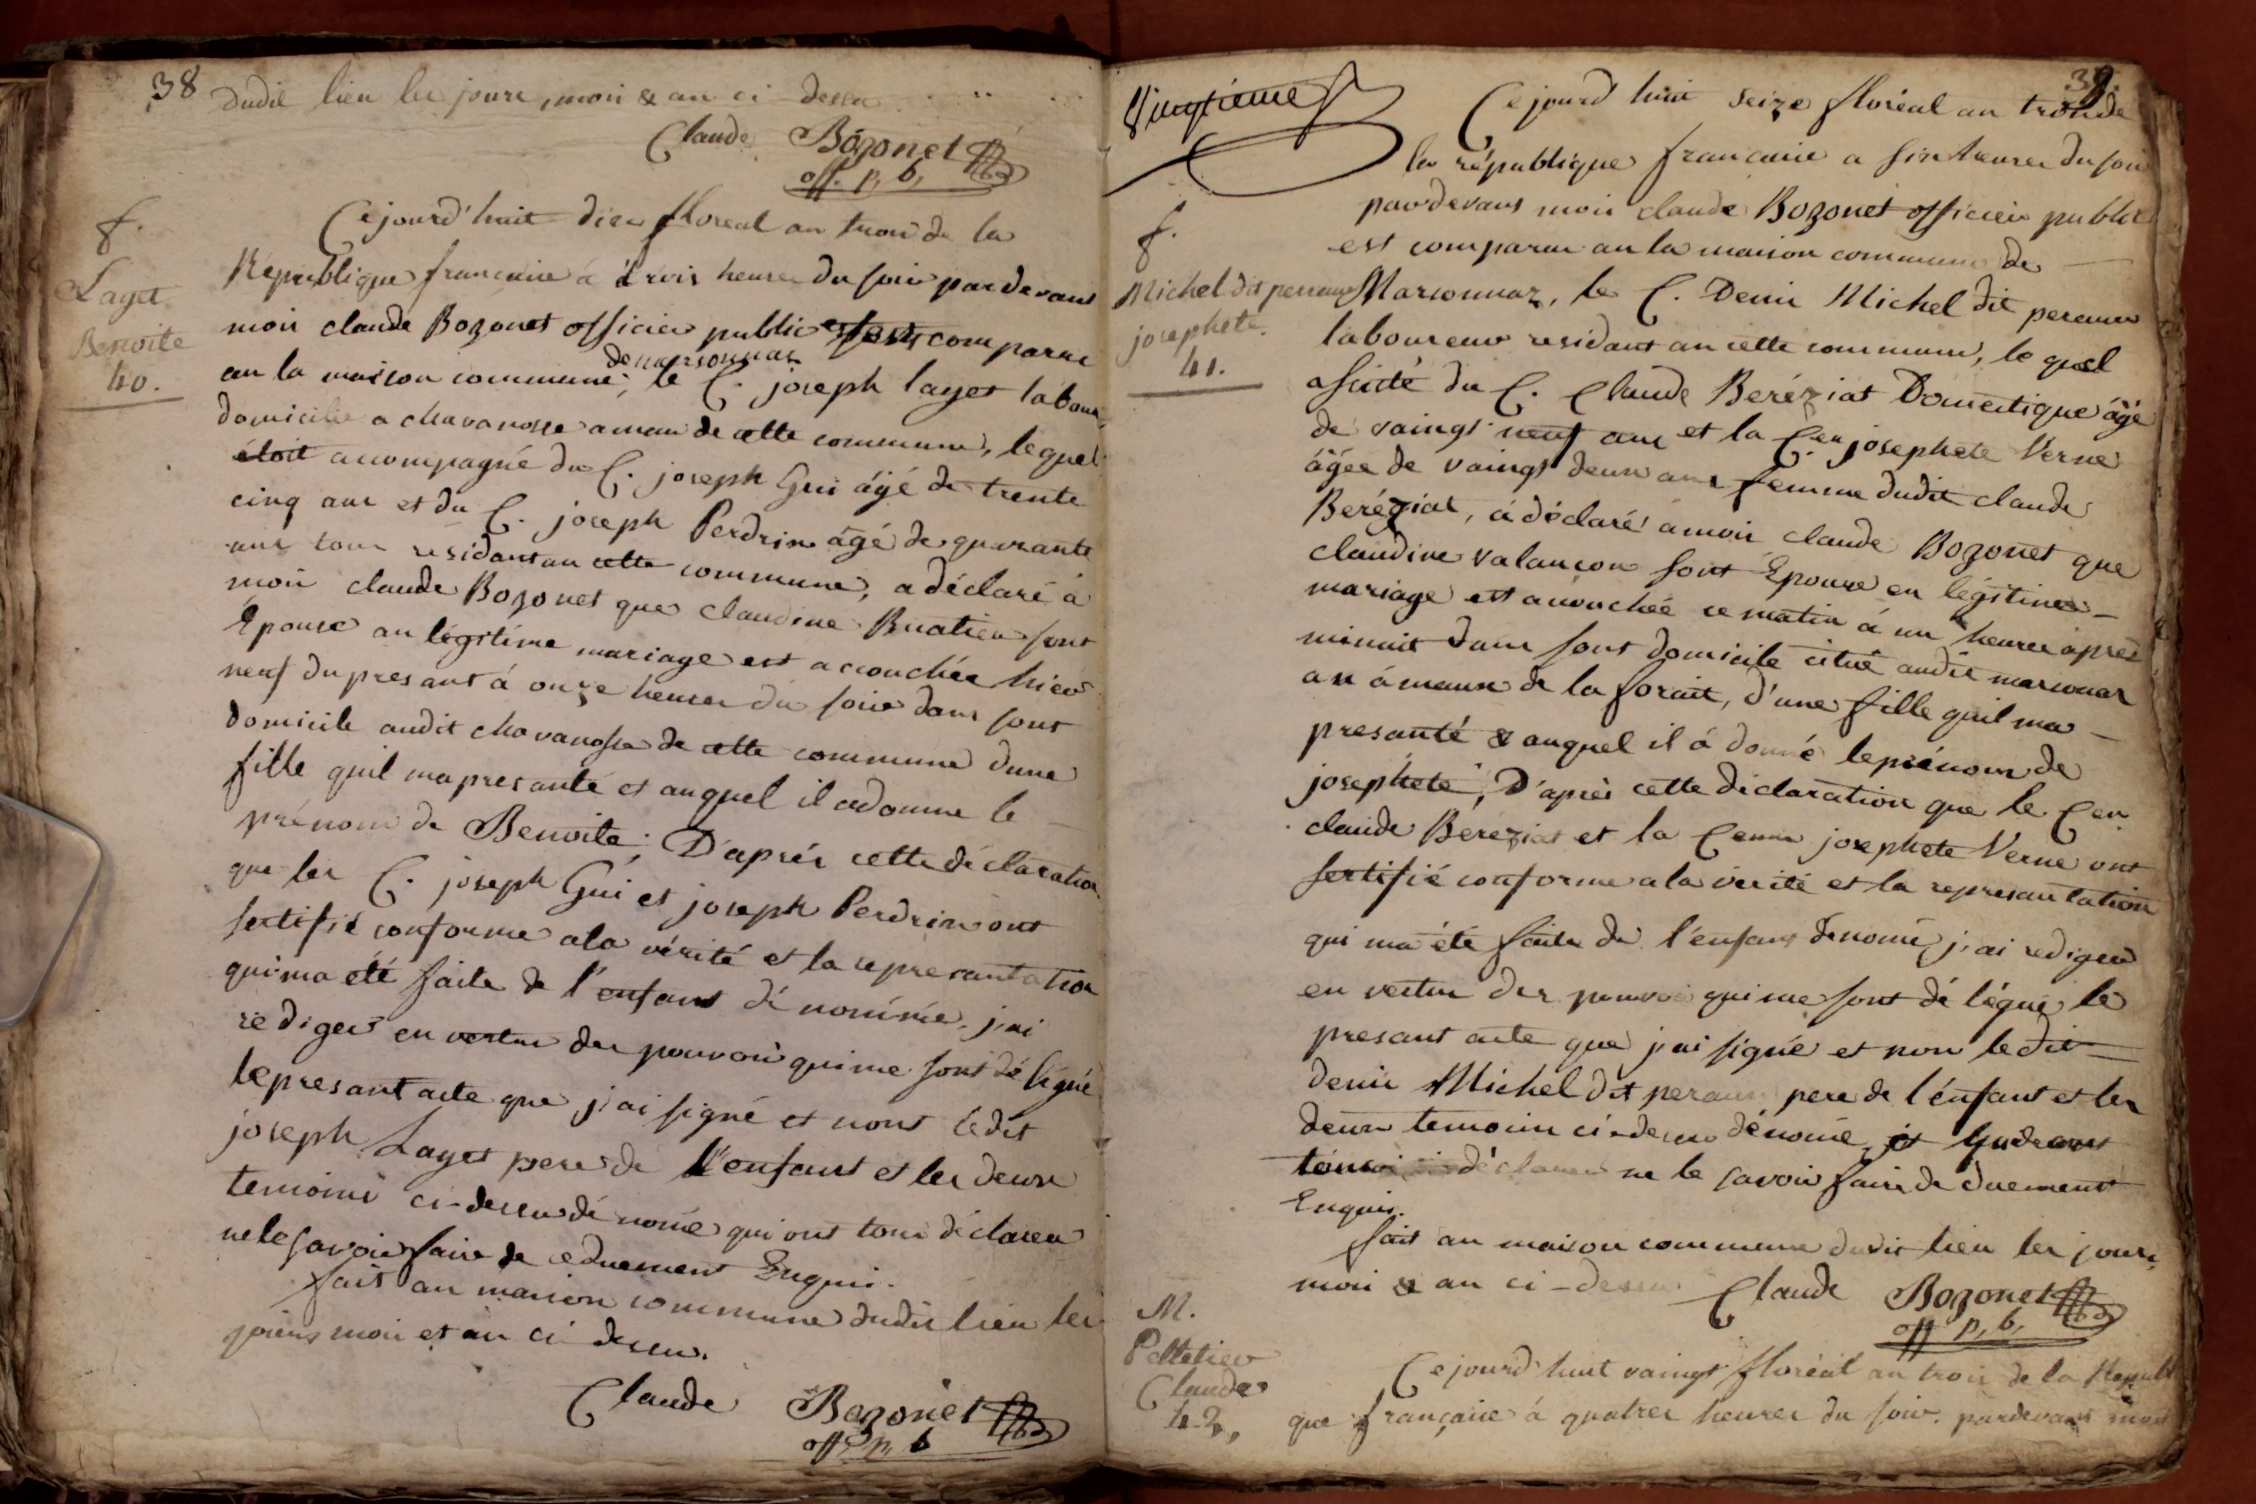 38
dudit lieu les jours, mois & an ci dessu
Claude Bozonet
off. p, b,
f.
Layet
Benoite
40.
Cejourd'huit dix floreal an trois de la
Republique francaise à trois heures du soir pardevant
moii claude Bozonet officier public est comparue
de marsonnas
au la maison commune, le C. joseph layet labour
domicile a chavanosse ameau de cette commune, lequel
étoit accompagné du C. joseph Gui âgé de trente
cinq ans et du C. joseph Perdrix âgé de quarante
ans tous residant au cette commune, a déclaré à
moii claude Bozonet que claudine Buatier sont
Epouse au légitime mariage est accouchée hier
neuf du presant á onze heures du soire dans sont
domicile audit chavanosse de cette commune dune
fille quil ma presanté et auquel il a donne le
prénom de Benoite; D'aprés cette déclaration
que les C. joseph Gui et joseph Perdrix ont
sertifié conforme a la vérité et la represantation
qui ma été faite de l'enfant dénommée, j'ai
rediger en vertue des pouvoir qui me sont délégué
le presant acte que j'ai signé et nont ledit
joseph Layet pere de l'enfant et les deux
temoins ci-dessu dénomé qui ont tous déclarer
ne le savoir faire de ce duement Enquis.
fait au maison commune dudit lieu les
jours mois et an ci dessu.
Claude Bozonet
off. p, b
39.
Vingtieme
f.
Michel dit peraux
josephete.
41.
Cejourd'huit seize floréal an trois de
la république francaise a sint heures du soir
pardevant moii claude Bozonet officier public
est comparue au la maison commune de
Marsonnaz, le C. Denis Michel dit peraux
laboureur residant au cette commune, lequel
assisté du C. Claude Beréziat Domestique âgé
de vaingt neuf ans et la Cen josephete Verne
âgée de vaingt deux ans femme dudit claude
Beréziat, á déclaré a moii claude Bozonet que
claudine valançon sont Epouse en légitime
mariage est accouchée ce matin á un heures aprés
minuit dans sont domicile citué audit marsonnas
an ámeaux de la forait, d'une fille quil ma
presanté & auquel il á donné le prénom de
josephete, D'aprés cette déclaration que le Cen
claude Bereziat et la Cenne josephete Verne ont
sertifié conforme a la vérité et la represantation
qui ma été faite de l'enfant dénomé j'ai rediger
en vertue des pouvoir qui me sont délégué le
presant acte que j'ai signé et non ledit
denis Michel dit peraux pere de l'énfant et les
deux temoins ci-dessu dénomé,
tous déclarer ne le savoir faire de duement
Enquis.
fait au maison commune dudit lieu les jours,
mois & an ci-dessu Claude Bozonet
off p, b,
M.
Pelletier
Claude
42,
Cejourd'huit vaingt floréal an trois de la Republi
que française à quatres heures du soir. pardevant moii